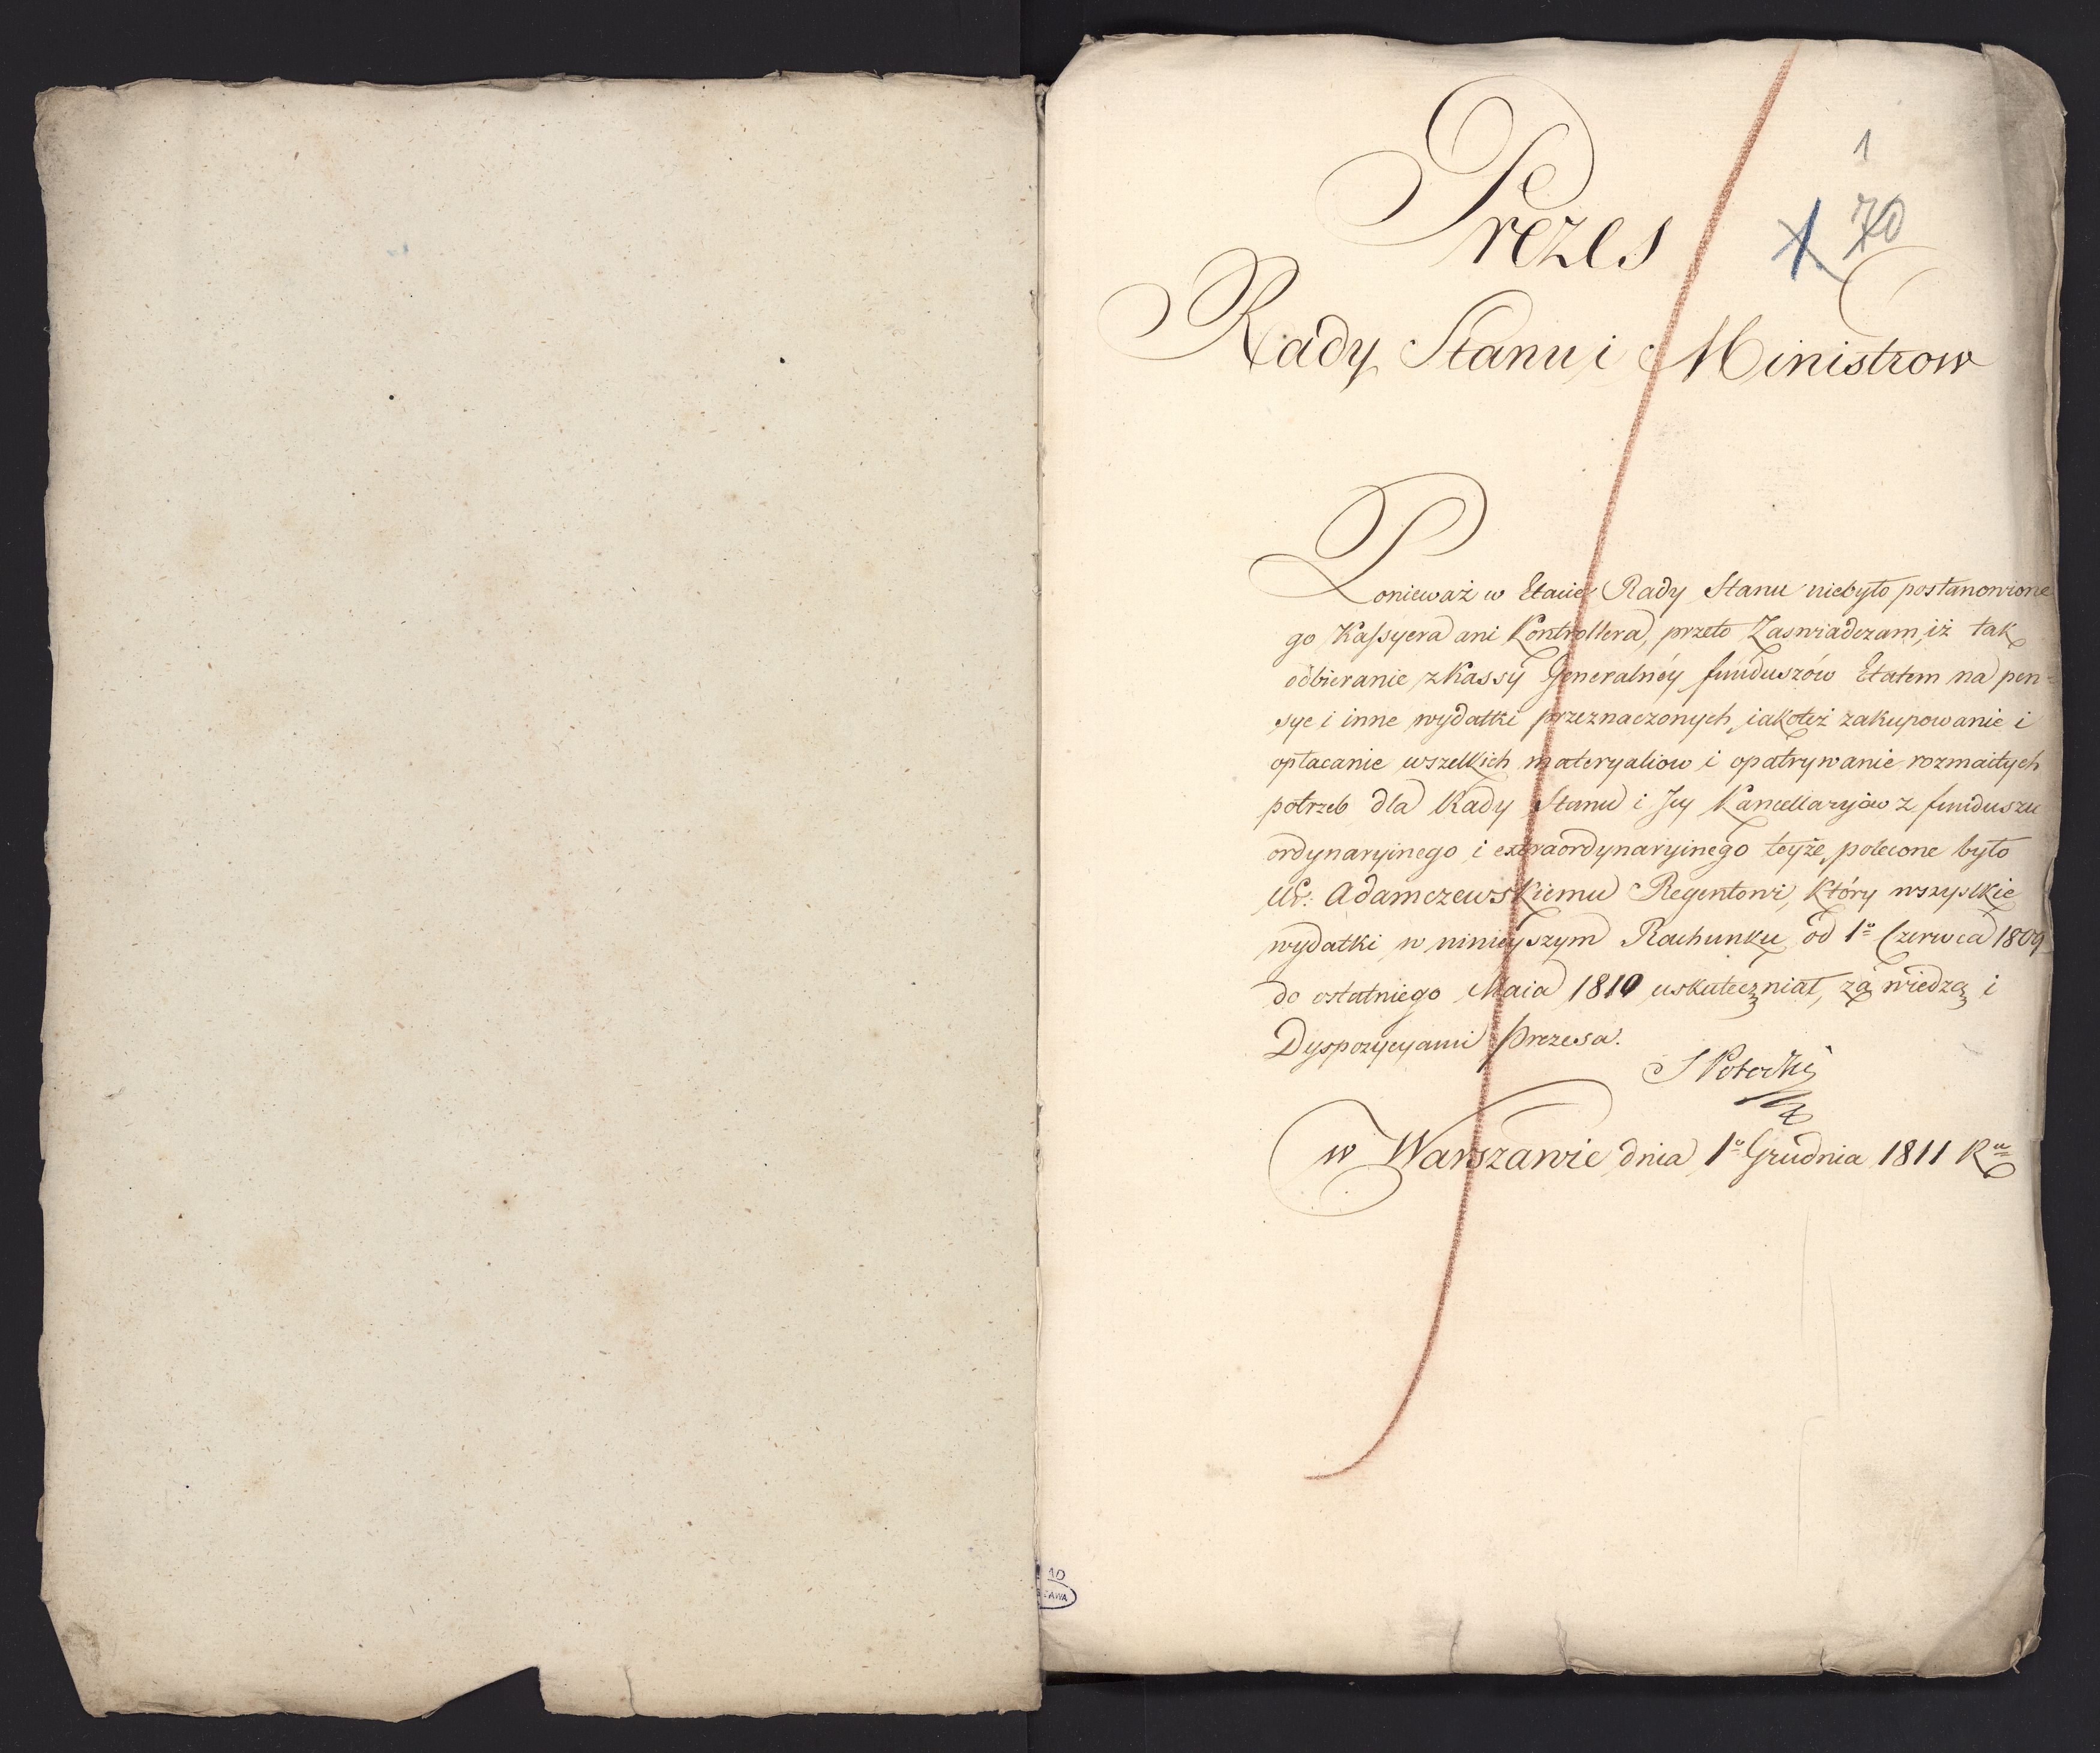 1
70
Prezes
Rady Stanu i Ministrow
Ponieważ w Etacie Rady Stanu niebyło postanowione
go Kassyera ani Kontrollera, przeto Zaswiadczam, iż tak
odbieranie z Kassy Generalnéy funduszów Etatem na pen=
sye i inne wydatki przeznaczonych, iakoteż zakupowanie i
opłacanie wszelkich materyałiow i opatrywanie rozmaitych
potrzeb dla Rady Stanu i Jey Kancellaryiow z funduszu
ordynaryinego i extraordynaryinego teyże, polecone było
Ur: Adamczewskiemu Regentowi, który wszystkie
wydatki w ninieyszym Rachunku od 1o Czerwca 1809
do ostatniego Maia 1810 uskuteczniał, za wiedzą i
Dyspozycyami Prezesa.
S Potocki
w Warszawie dnia 1o Grudnia 1811 Ru
AD
ZAWA